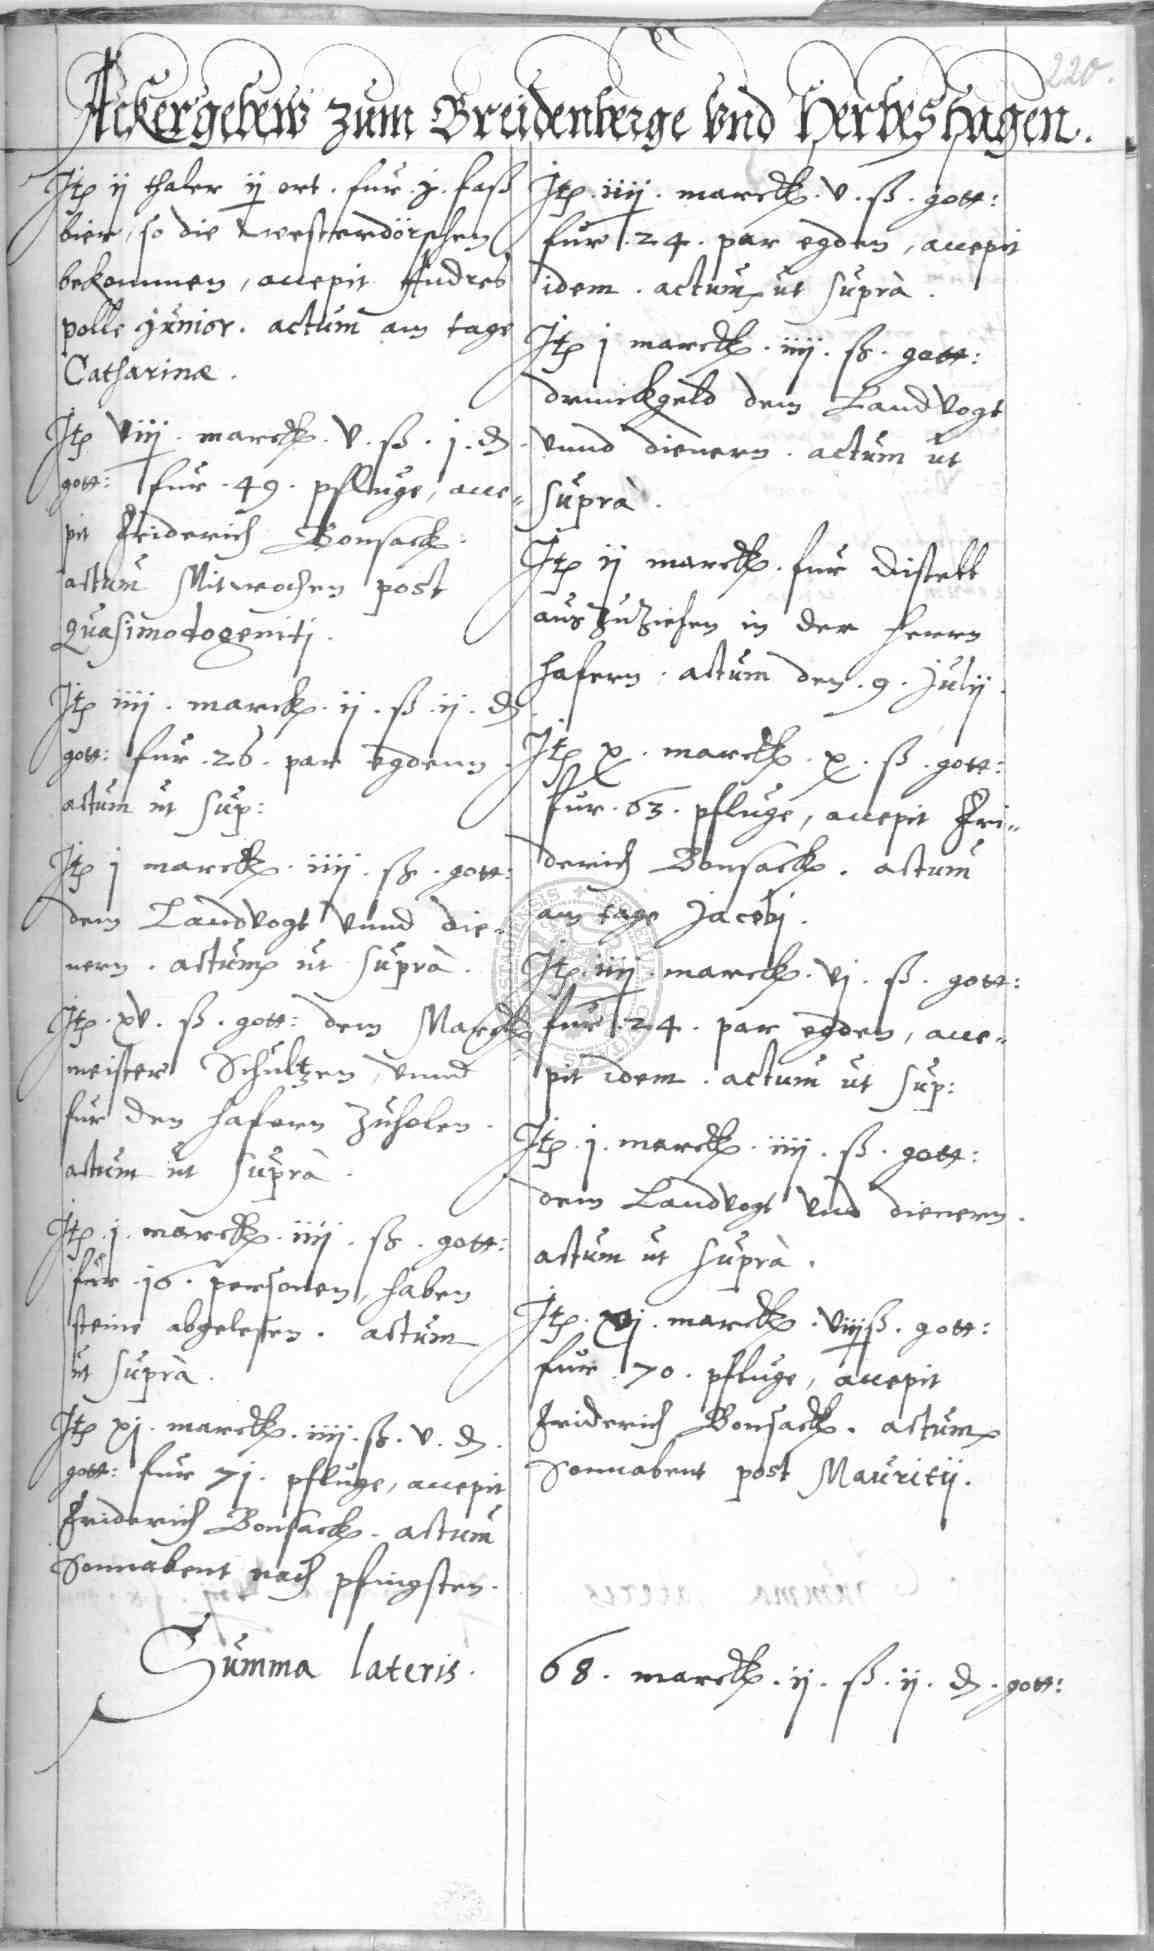 220.
Ackergebew zum Breidenberge vnd Herbeshagen.
Jtem ij thaler ij ort. fur .j. faß
bier, so die westerdörschen
bekommen, accepit Andres
polle junior. actum am tage
Catharinæ.
Jtem viij. marck. v. ß. j. d.
gott: fur .49. pfluge, acce-
pit Friderich Bonsack.
actum Mitwochen post
Quasimodogenitj.
Jtem iiij. marck. ij. ß. ij. d.
gott: fur .26. par egdenn.
actum ut sup:
Jtem j marck. iiij. ß. gott:
dem Landvogt vnnd die-
nern. actum ut suprà.
Jtem. xv. ß. gott: dem Marck
meister Schultzen, vnnd
fur den hafern zuholen.
actum ut suprà.
Jtem. j. marck. iiij. ß. gott:
fur .16. personen, haben
steine abgelesen. actum
ut suprà.
Jtem xj. marck. iiij. ß. v. d.
gott: fur 71. pfluge, accepit
Friderich Bonsack. actum
Sonnabent nach pfingsten.
Jtem. iiij. marck. v. ß. gott:
fur .24. par egden, accepit
idem. actum ut suprà.
Jtem j marck. iiij. ß. gott:
drinckgeld dem Landvogt
vnnd dienern. actum ut
suprà.
Jtem ij marck. fur distell
auszuziehen in der herrn
hafern. actum den .9. Julij.
Jtem x. marck. x. ß. gott:
fur .63. pfluge, accepit Fri-
derich Bonsack. actum
am tage Jacobj.
Jtem iiij. marck. vj. ß. gott:
fur .24. par egden, acce-
pit idem. actum ut sup:
Jtem. j. marck. iiij. ß. gott:
dem Landvogt vnd dienern.
actum ut suprà.
Jtem. xj. marck. viij ß. gott:
fur .70. pfluge, accepit
Friderich Bonsack. actum
Sonnabent post Mauritij.
Summa lateris. 68. marck. ij. ß. ij. d. gott: